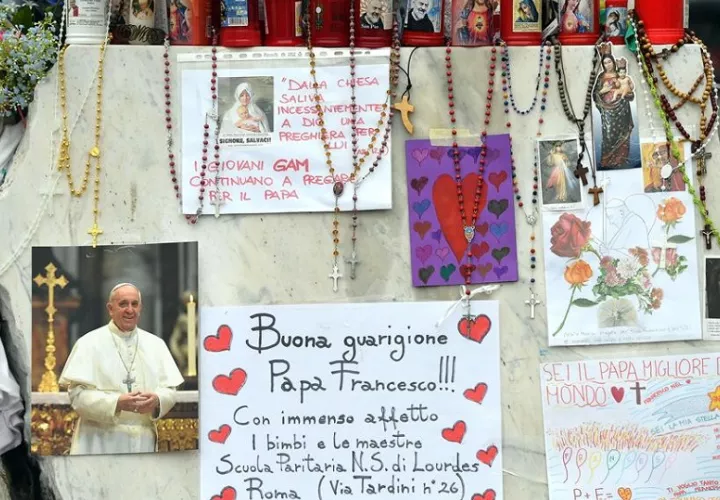 "DALLA CHIESA
SALIVA
INCESSANTEMENTE
A DIO UNA
PREGHIERA PER
LUI"
I GIOVANI GAM
CONTINUANO A PREGARE
PER IL PAPA
Buona guarigione
Papa Francesco!!!
Con immenso affetto
I bimbi e le maestre
Scuola Paritaria N.S. di Lourdes
Roma (Via Tardini n° 26)
SEI IL PAPA MIGLIORE DEL
MONDO
SEI LA MIA STELLA
P + F =